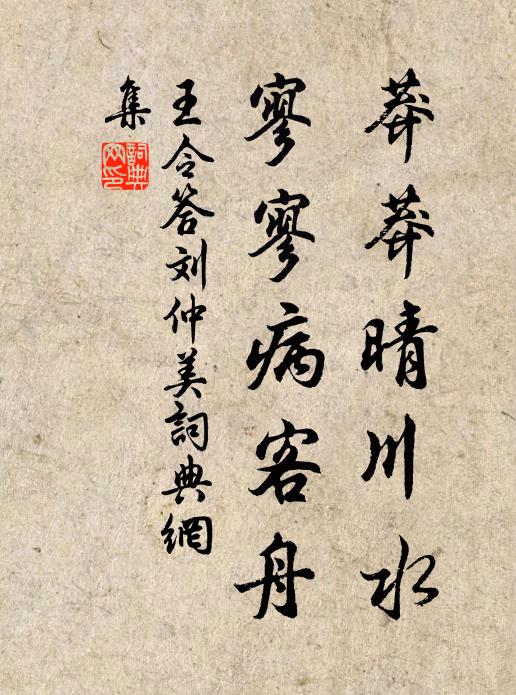 莽莽晴川水
寥寥病客舟
王令答刘仲美詞典網
集
詞典
网印